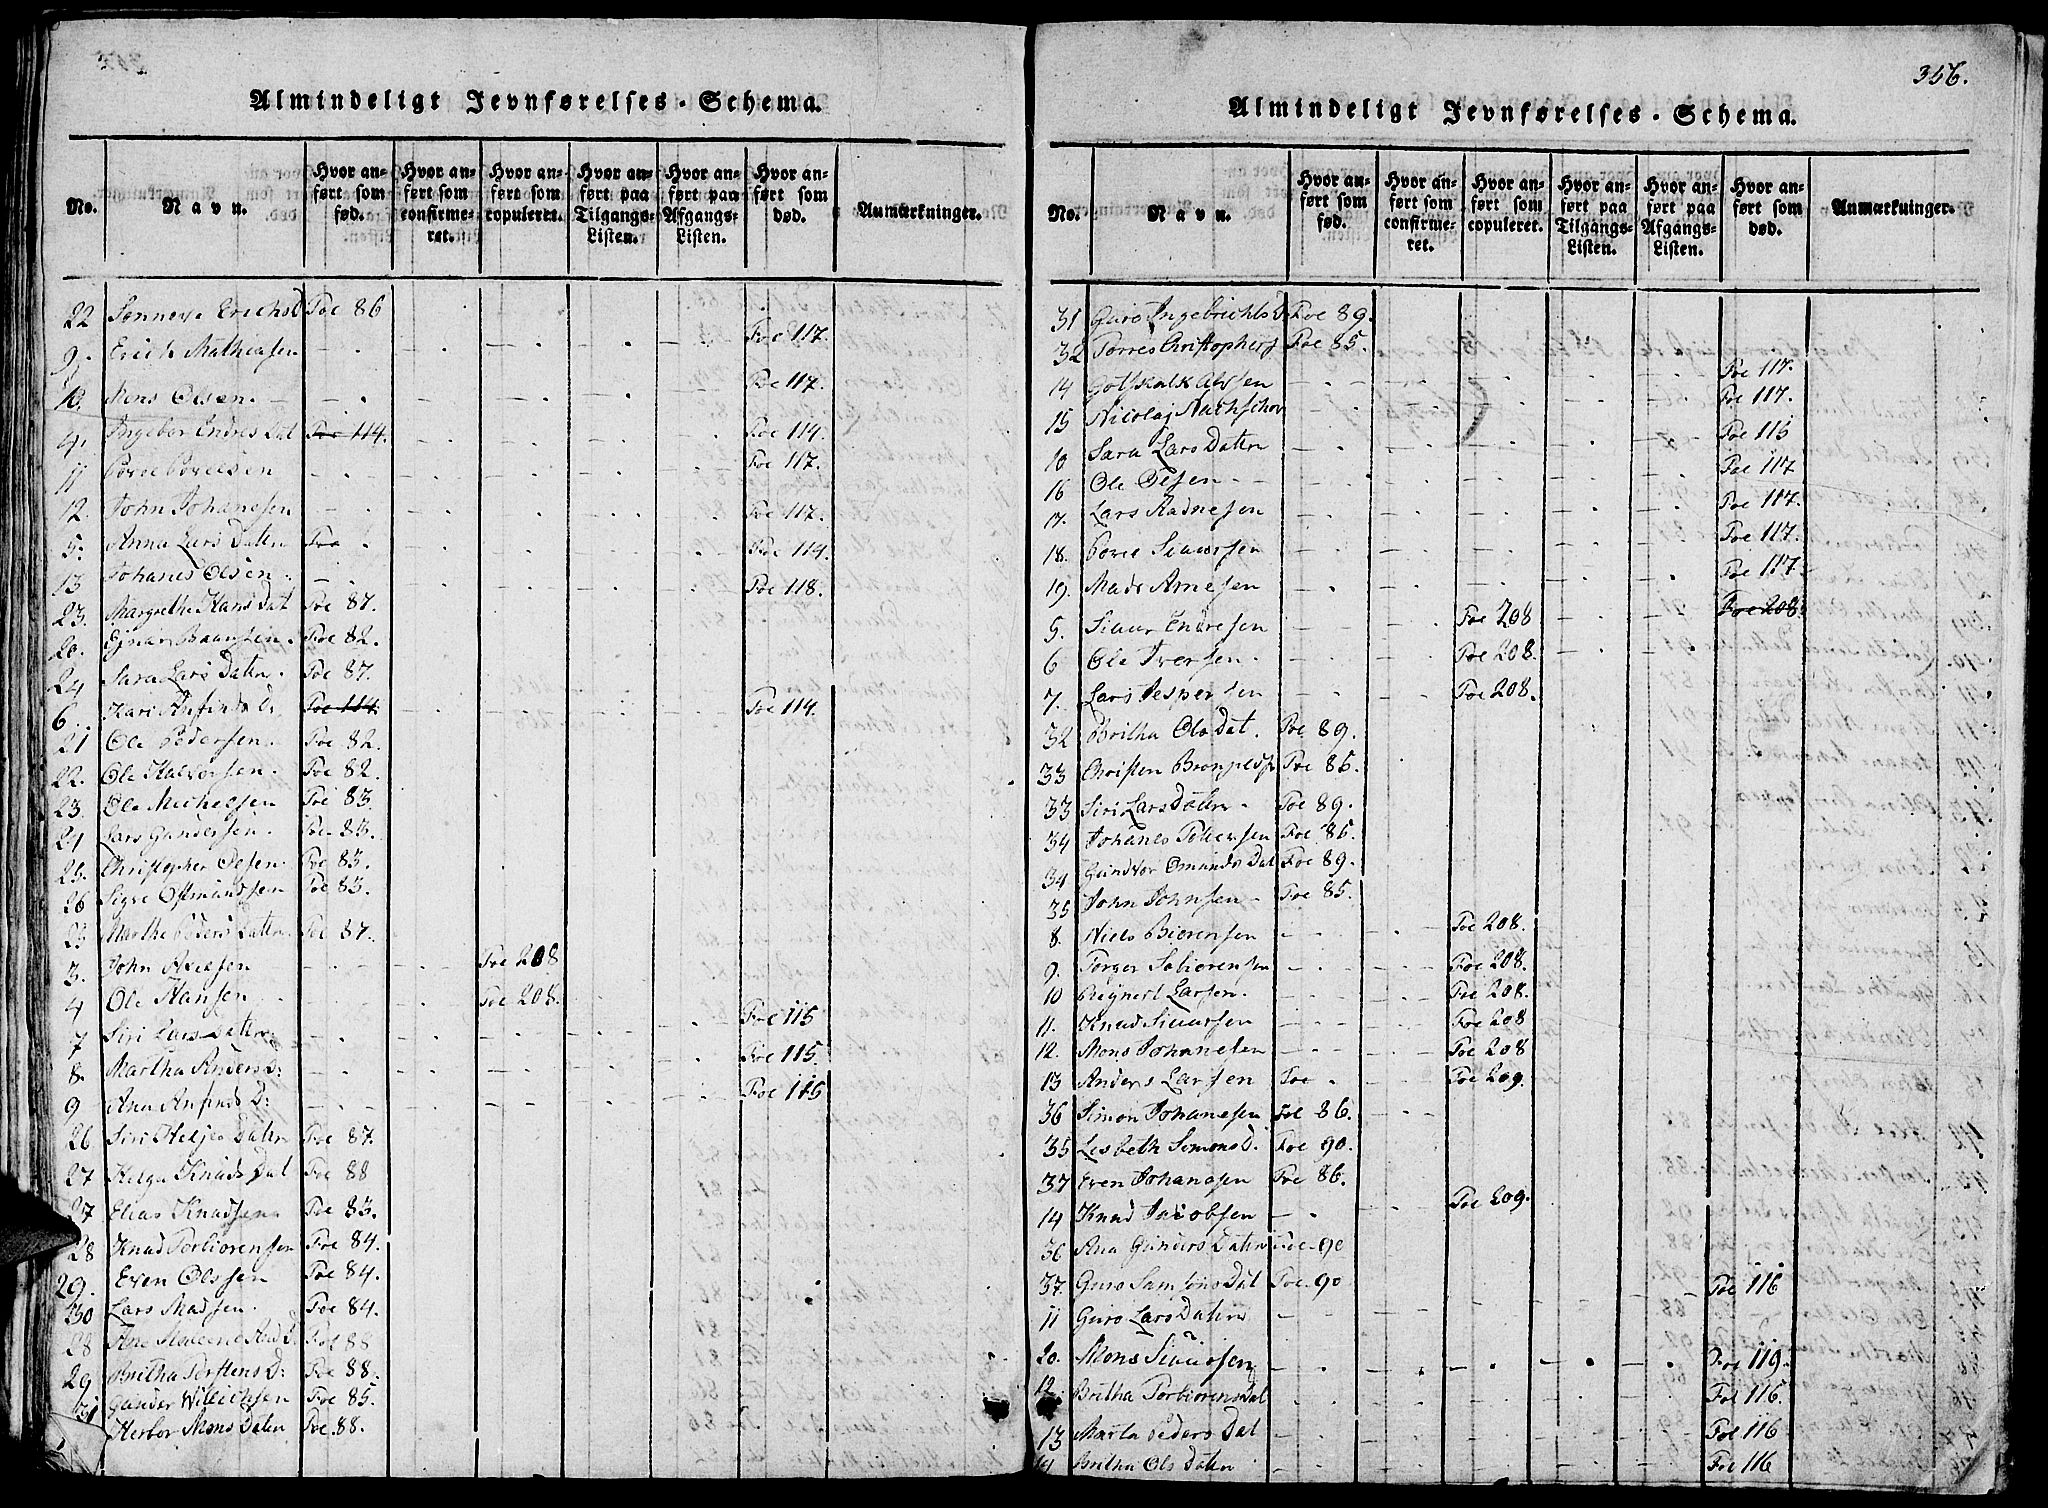 Almindeligt Jevnførelses-Schema.
No. Navn. Hvor anført som fød. Hvor anført som confirmeret. Hvor anført som copuleret. Hvor anført paa Tilgangs-Listen. Hvor anført paa Afgangs-Listen. Hvor anført som død. Anmærkninger.
22 Sønneve Erichs D Foe 86
9. Erich Mathiasen Foe 117.
10. Mons Olsen. Foe 117.
4. Ingebor Endres Dat Foe 114. Foe 114.
11 Povel Povelsen Foe 117.
12. John Johanesen Foe 117.
5. Anna Lars Datter Foe Foe 114.
13 Johanes Olsen. Foe 118.
23. Margrethe Hans Dat Foe 87.
20. Ejnar Baarsen. Foe 82.
24 Sara Lars Datter. Foe 87.
6. Kari Anfinds D: Foe 114. Foe 114.
21 Ole Pedersen. Foe 82.
22. Ole Halvorsen. Foe 82.
23. Ole Michelsen Foe 83.
24 Lars Gundersen. Foe. 83.
25. Christopher Olsen. Foe 83.
26 Sigve Ostmundsen Foe 83.
25 Marthe Peders Datter. Foe 87.
3. John Axelsen Foe 208
4 Ole Hansen Foe 208.
7 Siri Lars Datter Foe 115
8. Martha Anders D: Foe 115.
9 Ana Anfinds D: Foe 115
26 Siri Helje Datter Foe 87.
27 Helga Knuds Dat Foe 88
27 Elias Knudsen Foe 83.
28 Knud Torbiorensen Foe 84.
29. Even Olssen Foe 84.
30 Lars Madsen. Foe 84.
28 Ane Malene And D: Foe 88
29 Britha Torstens D: Foe 88.
31 Gunder Willichsen Foe 85.
Herbor Mons Datter Foe. 88.
356.
Almindeligt Jevnførelses-Schema.
No. Navn. Hvor anført som fød. Hvor anført som confirmeret. Hvor anført som copuleret. Hvor anført paa Tilgangs-Listen. Hvor anført paa Afgangs-Listen. Hvor anført som død. Anmærkninger.
31 Guro Ingebrichts D. Foe 89.
32 Torres Christophers Foe 85.
14 Gotskalk Alfsen Foe 117.
15 Nicolaj Foe 117.
10 Sara Lars Datter Foe 115
16 Ole Olsen. Foe 117
17. Lars Aadnesen Foe 117.
18. Povel Siursen Foe 117.
19. Mads Arnesen Foe 117.
5. Siuur Endresen Foe 208 Foe 208.
6 Ole Iversen. Foe 208.
7. Lars Jespersen Foe 208.
32 Britha Ols Dat. Foe 89.
33 Christen Foe 85.
33 Siri Lars Datter. Foe 89.
34 Johanes Pettersen Foe 85.
34 Gundvor Omunds Dat Foe 89.
35 John Johnsen. Foe 85.
8. Niels Biørensen Foe 208.
9. Torger Foe 208.
10 Reynert Larsen. Foe 208.
11. Knud Siuursen Foe 208
12. Mons Johanesen Foe 208
13 Anders Larsen Foe Foe 209.
36 Simon Johanesen Foe 86.
35 Lisbeth Simons D. Foe 90.
37 Even Johanesen Foe 86.
14 Knud Jacobsen Foe 209.
36 Ana Gunders Datter Foe 90
37. Guro Samsons Dat Foe. 90
11 Guro Lars Datter Foe 116
20. Mons Siuursen Foe 119.
12 Britha Torbiorens Dat Foe 116.
13 Marta Peders Dat Foe 116
14 Britha Ols Datter Foe 116